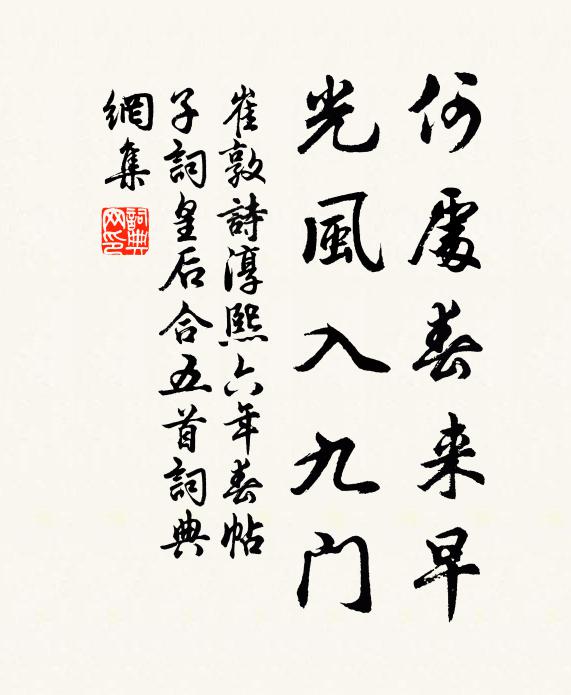 何處春来早
光風入九门
崔敦詩淳熙六年春帖
子詞皇后合五首詞典
網集
詞典网印